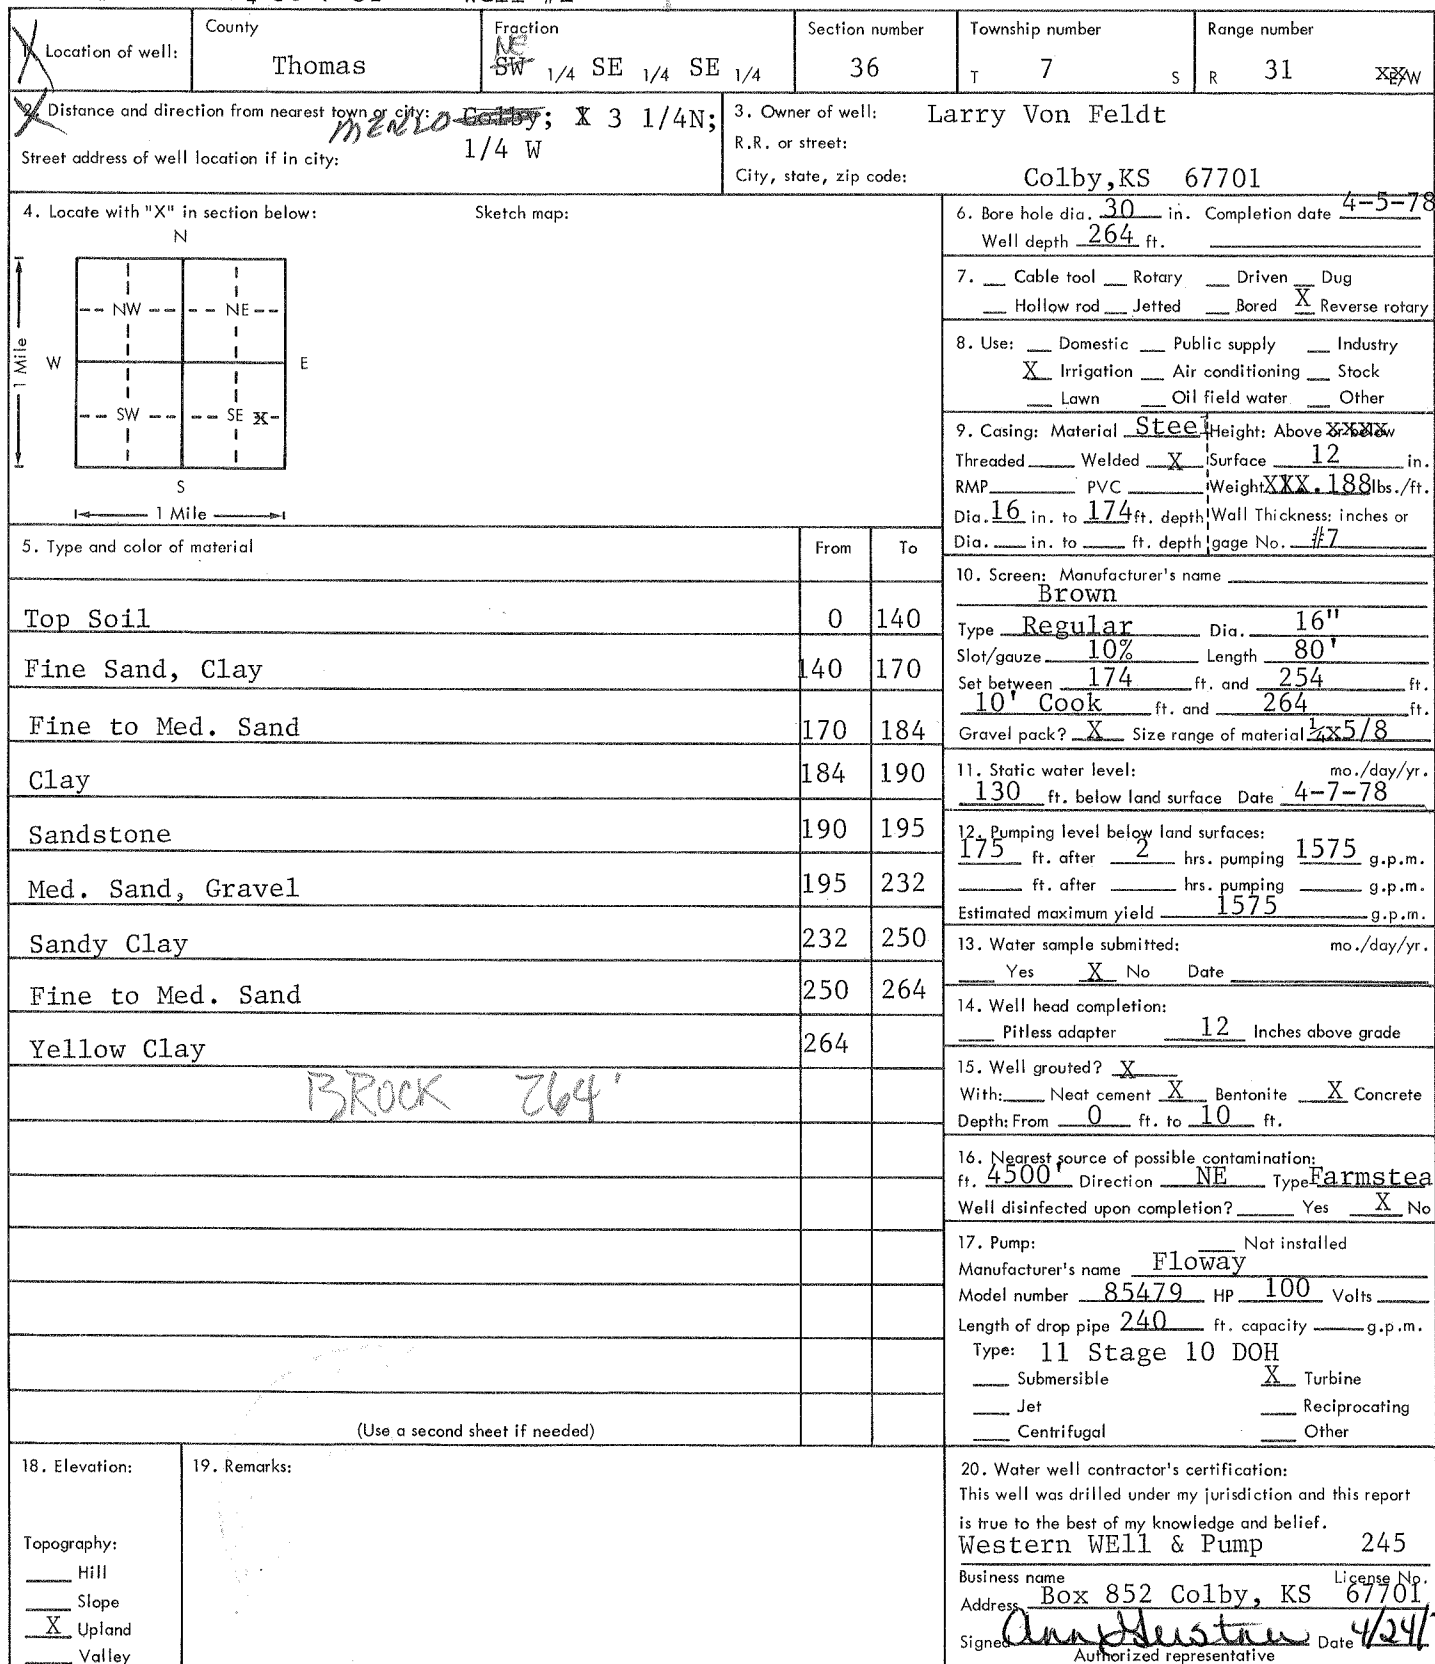 Well #2
1. Location of well:
County
Thomas
Fraction
NE
SW 1/4 SE 1/4 SE 1/4
Section number
36
Township number
T 7 S
Range number
R 31 E/W
2. Distance and direction from nearest town or city: MENLO Colby; X 3 1/4N;
1/4 W
Street address of well location if in city:
3. Owner of well: Larry Von Feldt
R.R. or street:
City, state, zip code: Colby,KS 67701
4. Locate with "X" in section below:
Sketch map:
N
NW NE
W E
1 Mile
SW SE X
S
1 Mile
5. Type and color of material From To
Top Soil 0 140
Fine Sand, Clay 140 170
Fine to Med. Sand 170 184
Clay 184 190
Sandstone 190 195
Med. Sand, Gravel 195 232
Sandy Clay 232 250
Fine to Med. Sand 250 264
Yellow Clay 264
BROCK 264'
(Use a second sheet if needed)
6. Bore hole dia. 30 in. Completion date 4-5-78
Well depth 264 ft.
7. Cable tool Rotary Driven Dug
Hollow rod Jetted Bored X Reverse rotary
8. Use: Domestic Public supply Industry
X Irrigation Air conditioning Stock
Lawn Oil field water Other
9. Casing: Material Steel Height: Above or below
Threaded Welded X Surface 12 in.
RMP PVC Weight XXX.188 lbs./ft.
Dia. 16 in. to 174 ft. depth Wall Thickness: inches or
Dia. in. to ft. depth gage No. #7
10. Screen: Manufacturer's name
Brown
Type Regular Dia. 16"
Slot/gauze 10% Length 80'
Set between 174 ft. and 254 ft.
10' Cook ft. and 264 ft.
Gravel pack? X Size range of material ¼x5/8
11. Static water level: mo./day/yr.
130 ft. below land surface Date 4-7-78
12. Pumping level below land surfaces:
175 ft. after 2 hrs. pumping 1575 g.p.m.
ft. after hrs. pumping g.p.m.
Estimated maximum yield 1575 g.p.m.
13. Water sample submitted: mo./day/yr.
Yes X No Date
14. Well head completion:
Pitless adapter 12 Inches above grade
15. Well grouted? X
With: Neat cement X Bentonite X Concrete
Depth: From 0 ft. to 10 ft.
16. Nearest source of possible contamination:
ft. 4500' Direction NE Type Farmstea
Well disinfected upon completion? Yes X No
17. Pump: Not installed
Manufacturer's name Floway
Model number 85479 HP 100 Volts
Length of drop pipe 240 ft. capacity g.p.m.
Type: 11 Stage 10 DOH
Submersible X Turbine
Jet Reciprocating
Centrifugal Other
18. Elevation:
Topography:
Hill
Slope
X Upland
Valley
19. Remarks:
20. Water well contractor's certification:
This well was drilled under my jurisdiction and this report
is true to the best of my knowledge and belief.
Western WEll & Pump 245
Business name License No.
Address Box 852 Colby, KS 67701
Signed Date 4/24/
Authorized representative